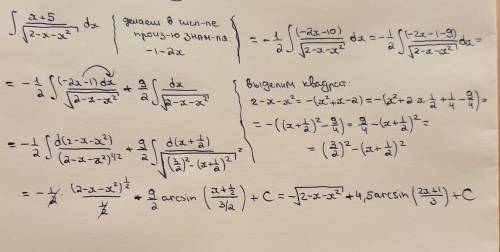 ∫ (x+5)/√(2-x-x²) dx { делаем в числ-ле произ-ю знам-ля: -1-2x { = -1/2 ∫ (-2x-10)/√(2-x-x²) dx = -1/2 ∫ (-2x-1-9)/√(2-x-x²) dx =
= -1/2 ∫ (-2x-1)dx/√(2-x-x²) + 9/2 ∫ dx/√(2-x-x²) { выделим квадрат:
2-x-x² = -(x²+x-2) = -(x²+2·x·1/2+1/4-9/4) =
= -((x+1/2)²-9/4) = 9/4-(x+1/2)² =
= (3/2)²-(x+1/2)²
= -1/2 ∫ d(2-x-x²)/(2-x-x²)^(1/2) + 9/2 ∫ d(x+1/2)/√((3/2)²-(x+1/2)²) =
= -1/2 · (2-x-x²)^(1/2)/(1/2) + 9/2 arcsin((x+1/2)/(3/2)) + C = -√(2-x-x²) + 4,5 arcsin((2x+1)/3) + C